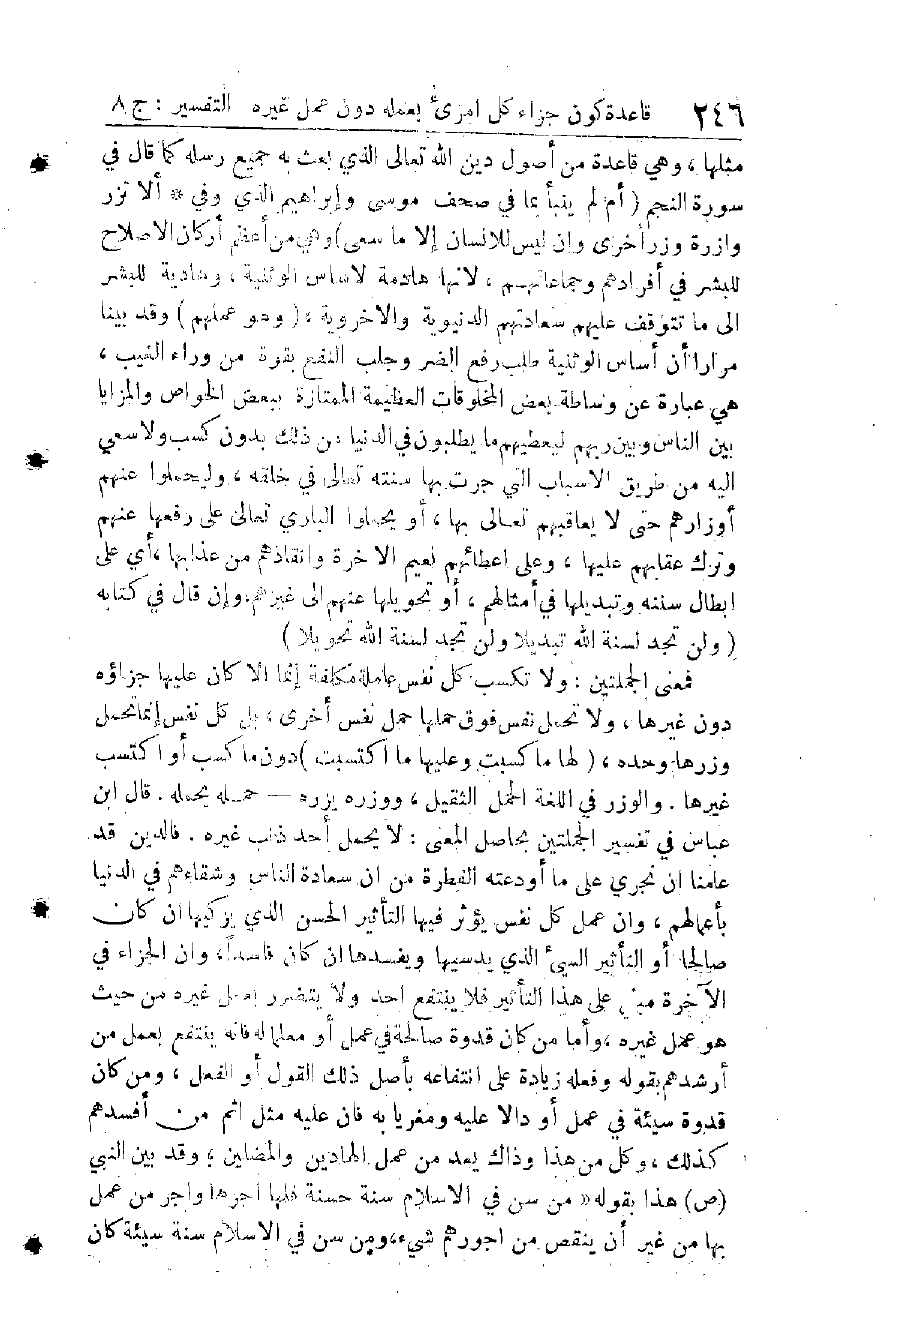 ٢٤٦ قاعدة كون جزاء كل امرئ بعمله دون عمل غيره التفسير : ج ٨
مثلها ، وهي قاعدة من أصول دين الله تعالى الذي بعث به جميع رسله كما قال في
سورة النجم ( أم لم ينبأ بما في صحف موسى وإبراهيم الذي وفى * ألا تزر
وازرة وزر أخرى وان ليس للانسان إلا ما سعى ) وهي من أعظم أركان الاصلاح
للبشر في أفرادهم وجماعاتهم ، لانها هادمة لاساس الوثنية ، وهادية للبشر
الى ما تتوقف عليهم سعادتهم الدنيوية والاخروية ، ( وهو عملهم ) وقد بينا
مرارا أن أساس الوثنية طلب رفع الضر وجلب النفع بقوة من وراء الغيب ،
هي عبارة عن وساطة بعض المخلوقات العظيمة الممتازة ببعض الخواص والمزايا
بين الناس وبين ربهم ليعطيهم ما يطلبون في الدنيا من ذلك بدون كسب ولا سعي
اليه من طريق الاسباب التي جرت بها سنته تعالى في خلقه ، وليحملوا عنهم
أوزارهم حتى لا يعاقبهم تعالى بها ، أو يحملوا الباري تعالى على رفعها عنهم
وترك عقابهم عليها ، وعلى اعطائهم نعيم الآخرة وانقاذهم من عذابها ، أي على
ابطال سننه وتبديلها في أمثالهم ، أو تحويلها عنهم الى غيرهم ، وإن قال في كتابه
( ولن تجد لسنة الله تبديلا ولن تجد لسنة الله تحويلا )
فمعنى الجملتين : ولا تكسب كل نفس عاملة مكلفة إثما الا كان عليها جزاؤه
دون غيرها ، ولا تحمل نفس فوق حملها حمل نفس أخرى ، بل كل نفس إنما تحمل
وزرها وحده ، ( لها ما كسبت وعليها ما اكتسبت ) دون ما كسب أو اكتسب
غيرها . والوزر في اللغة الحمل الثقيل ، ووزره يزره — حمله يحمله . قال ابن
عباس في تفسير الجملتين بحاصل المعنى : لا يحمل أحد ذنب غيره . فالدين قد
علمنا ان نجري على ما أودعته الفطرة من ان سعادة الناس وشقاءهم في الدنيا
بأعمالهم ، وان عمل كل نفس يؤثر فيها التأثير الحسن الذي يزكيها ان كان
صالحا أو التأثير السيئ الذي يدسيها ويفسدها ان كان فاسداً ، وان الجزاء في
الآخرة مبني على هذا التأثير فلا ينتفع احد ولا يتضرر بعمل غيره من حيث
هو عمل غيره ، وأما من كان قدوة صالحة في عمل أو معلما له فانه ينتفع بعمل من
أرشدهم بقوله وفعله زيادة على انتفاعه بأصل ذلك القول أو الفعل ، ومن كان
قدوة سيئة في عمل أو دالا عليه ومغريا به فان عليه مثل اثم من أفسدهم
كذلك ، وكل من هذا وذاك يعد من عمل الهادين والمضلين ؛ وقد بين النبي
(ص) هذا بقوله « من سن في الاسلام سنة حسنة فلها اجرها واجر من عمل
بها من غير أن ينقص من اجورهم شيء ، ومن سن في الاسلام سنة سيئة كان